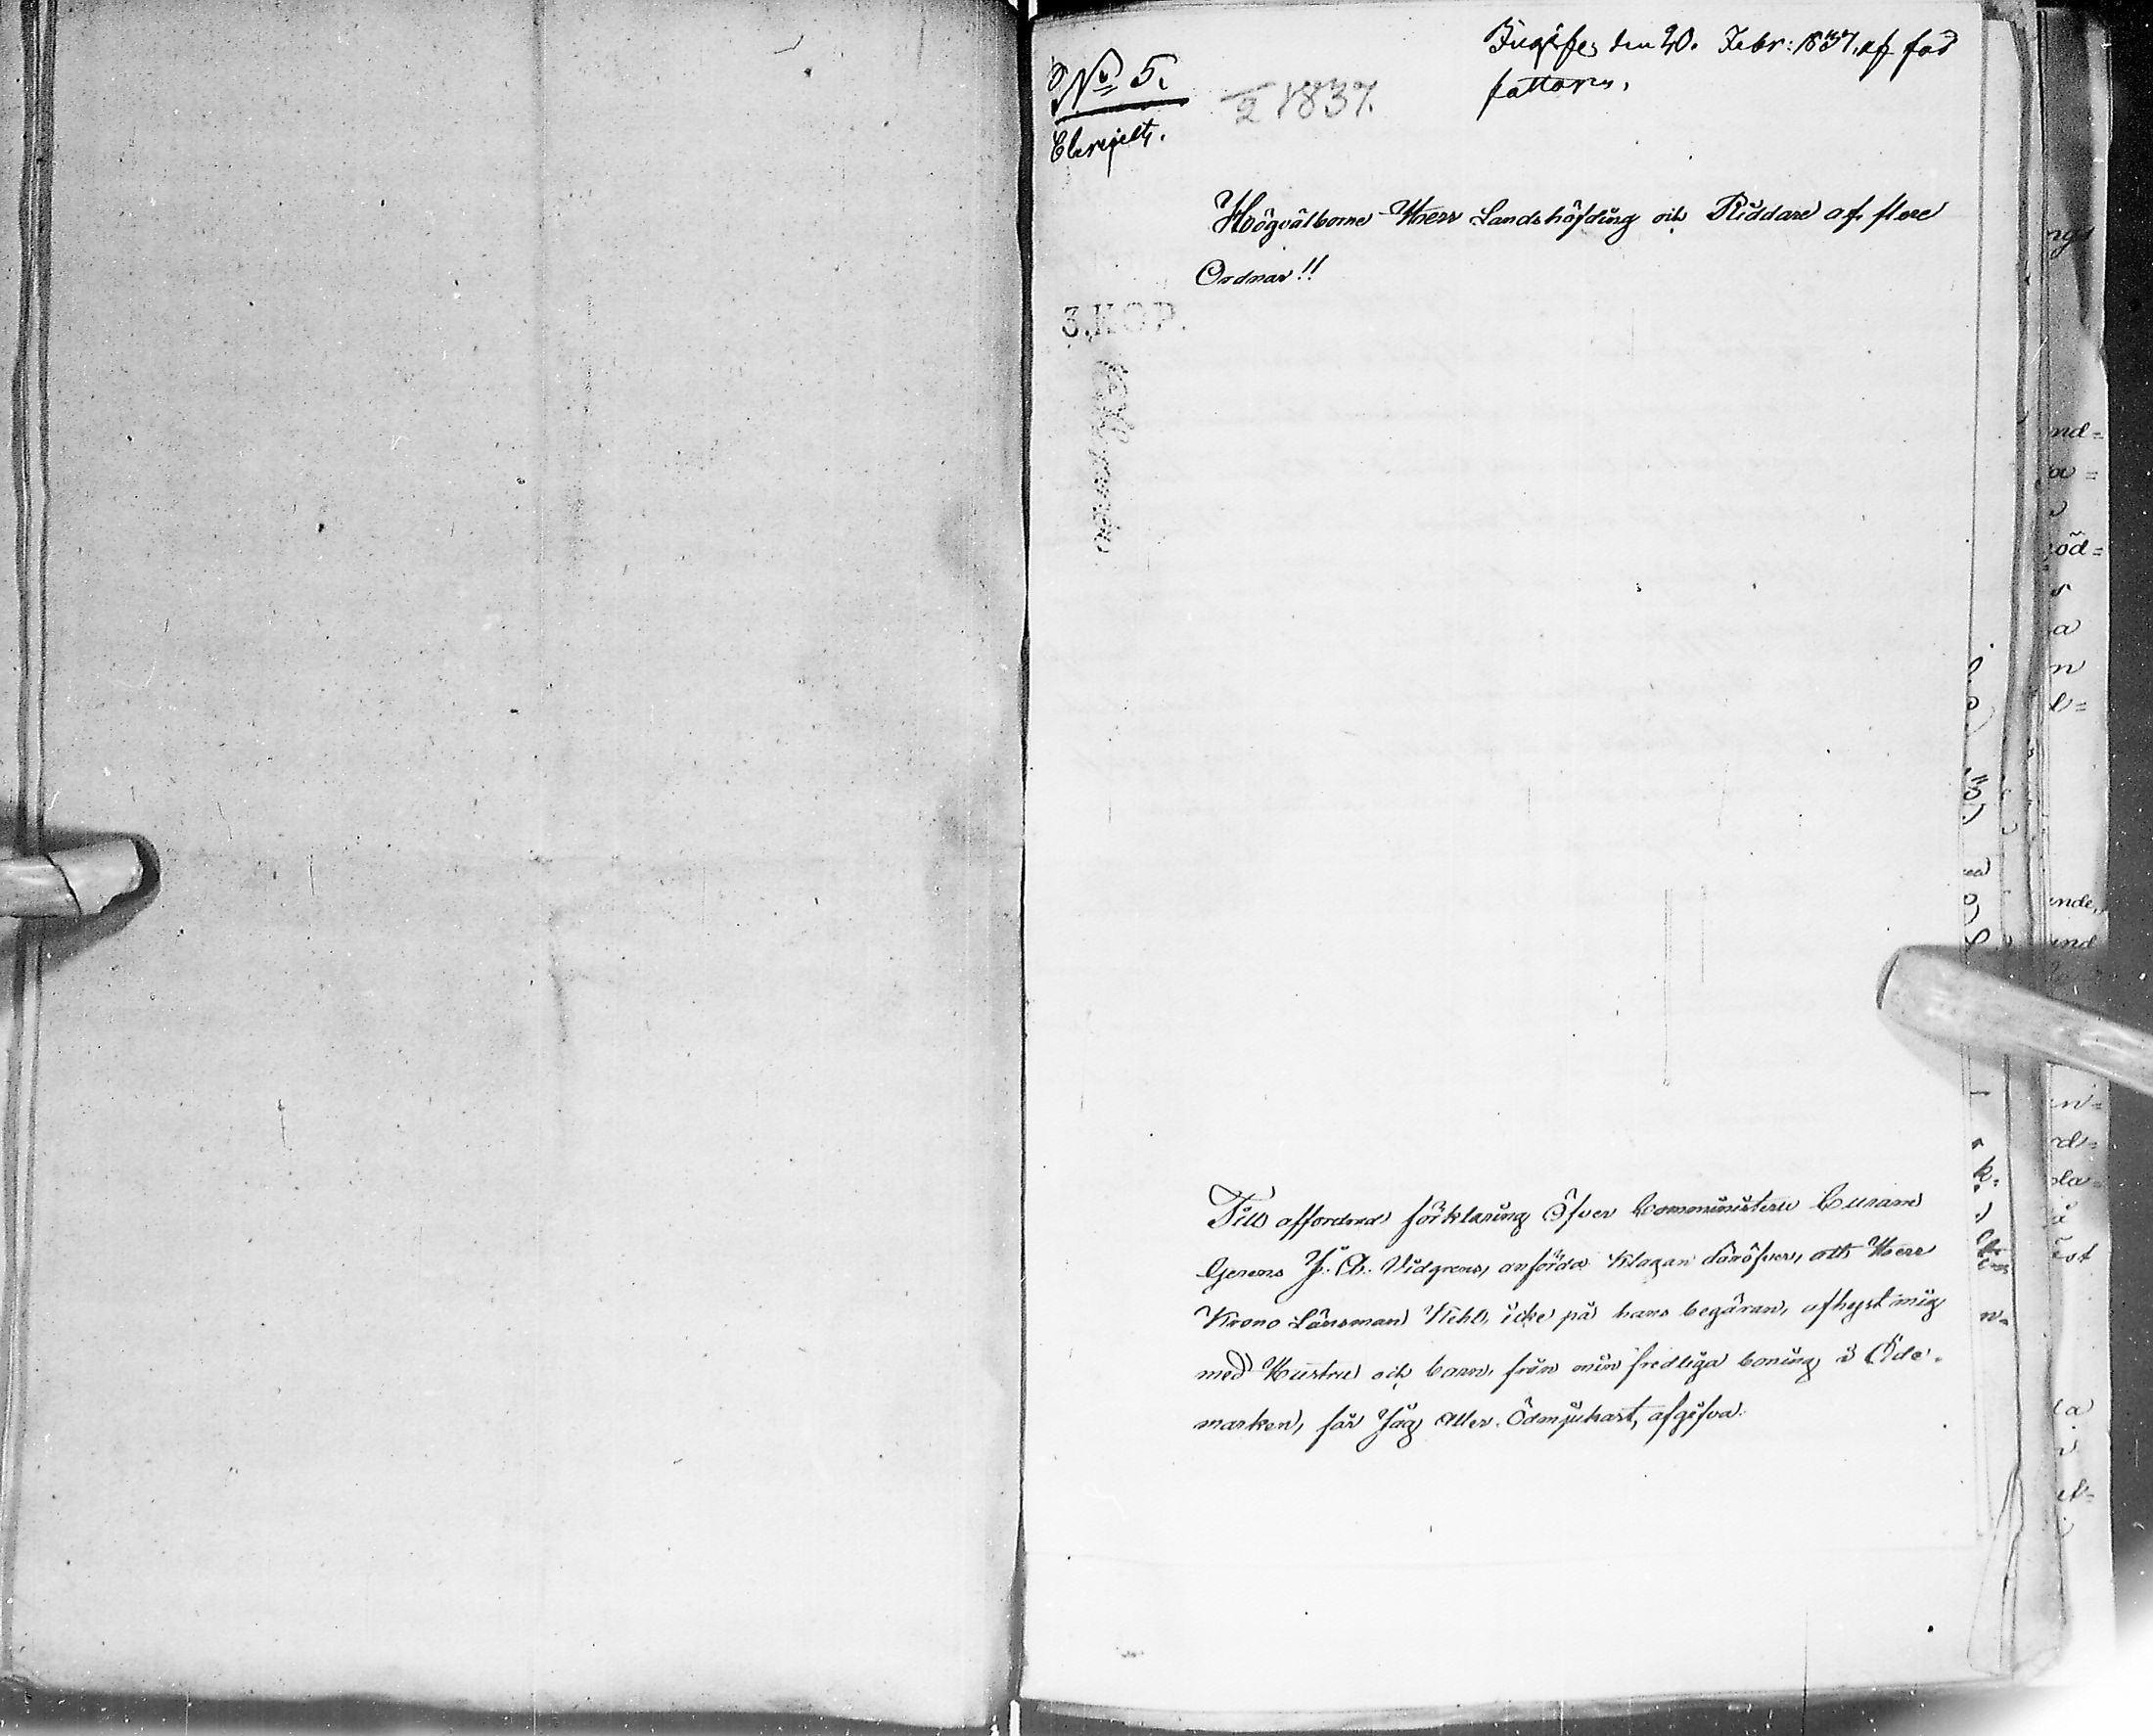 Ingifv. den 20. Febr: 1837. af för
fattaren.
No 5.
2 1837.
Högvälborne Herr Landshöfding och Riddare af flere
Ordnar!!
3.KOP.
Till affordrad förklaring Öfver Comministern Curam
Gerens J. A. Vidgrens, anförda Klagan däröfver, att Herr
Krono Länsman Kihl, icke på hans begäran, afhyst mig
med Hustru och barn, från min fredliga boning i Öde-
marken, får Jag Aller Ödmjukast, afgifva: